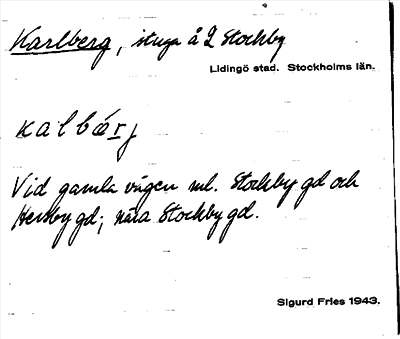 Karlberg, stuga å 2 Stockby
Lidingö stad. Stockholms län.
kalbärj
Vid gamla vägen ml. Stockby gd och
Hersby gd; nära Stockby gd.
Sigurd Fries 1943.